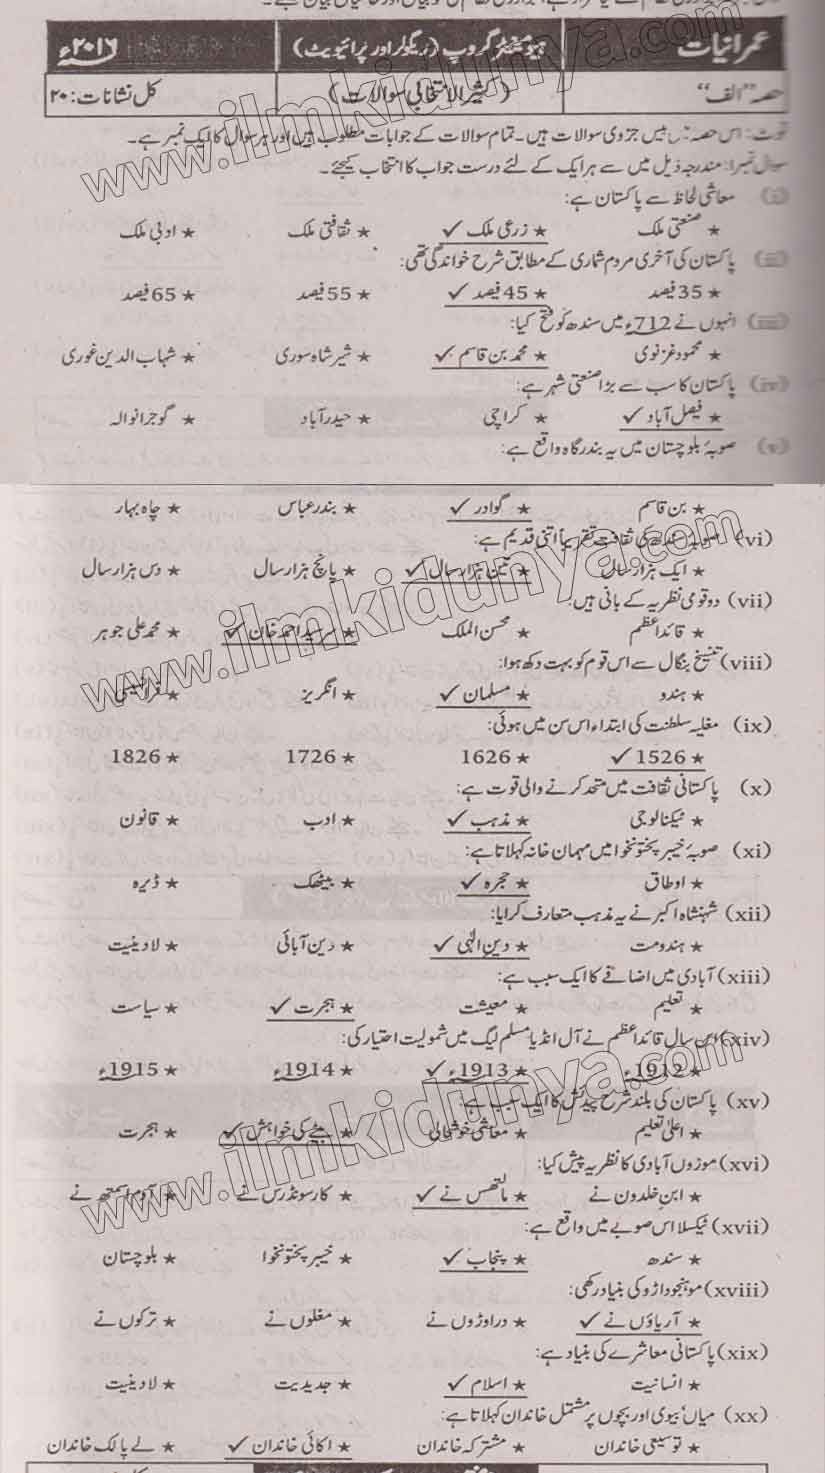 عمرانیات ہیومینٹیز گروپ (ریگولر اور پرائیویٹ) ۲۰۱۶ء
حصہ "الف" (کثیر الانتخابی سوالات) کل نشانات: ۲۰
نوٹ: اس حصہ میں بیس جزوی سوالات ہیں۔ تمام سوالات کے جوابات مطلوب ہیں اور ہر سوال کا ایک نمبر ہے۔
سوال نمبر ا: مندرجہ ذیل میں سے ہر ایک کے لئے درست جواب کا انتخاب کیجئے۔
(i) معاشی لحاظ سے پاکستان ہے:
★ صنعتی ملک ★ زرعی ملک ✓ ★ ثقافتی ملک ★ ادبی ملک
(ii) پاکستان کی آخری مردم شماری کے مطابق شرح خواندگی تھی:
★ 35 فیصد ★ 45 فیصد ✓ ★ 55 فیصد ★ 65 فیصد
(iii) انہوں نے 712ء میں سندھ کو فتح کیا:
★ محمود غزنوی ★ محمد بن قاسم ✓ ★ شیر شاہ سوری ★ شہاب الدین غوری
(iv) پاکستان کا سب سے بڑا صنعتی شہر ہے:
★ فیصل آباد ✓ ★ کراچی ★ حیدر آباد ★ گوجرانوالہ
(v) صوبۂ بلوچستان میں یہ بندرگاہ واقع ہے:
★ بن قاسم ★ گوادر ✓ ★ بندر عباس ★ چاہ بہار
(vi) صوبۂ سندھ کی ثقافت تقریباً اتنی قدیم ہے:
★ ایک ہزار سال ★ تین ہزار سال ✓ ★ پانچ ہزار سال ★ دس ہزار سال
(vii) دو قومی نظریہ کے بانی ہیں:
★ قائد اعظم ★ محسن الملک ★ سرسید احمد خان ✓ ★ محمد علی جوہر
(viii) تنسیخ بنگال سے اس قوم کو بہت دکھ ہوا:
★ ہندو ★ مسلمان ✓ ★ انگریز ★ فرانسیسی
(ix) مغلیہ سلطنت کی ابتداء اس سن میں ہوئی:
★ 1526 ✓ ★ 1626 ★ 1726 ★ 1826
(x) پاکستانی ثقافت میں متحد کرنے والی قوت ہے:
★ ٹیکنالوجی ★ مذہب ✓ ★ ادب ★ قانون
(xi) صوبۂ خیبر پختونخوا میں مہمان خانہ کہلاتا ہے:
★ اوطاق ★ حجرہ ✓ ★ بیٹھک ★ ڈیرہ
(xii) شہنشاہ اکبر نے یہ مذہب متعارف کرایا:
★ ہندومت ★ دینِ الٰہی ✓ ★ دین آبائی ★ لادینیت
(xiii) آبادی میں اضافے کا ایک سبب ہے:
★ تعلیم ★ معیشت ★ ہجرت ✓ ★ سیاست
(xiv) اس سال قائد اعظم نے آل انڈیا مسلم لیگ میں شمولیت اختیار کی:
★ 1912ء ★ 1913ء ✓ ★ 1914ء ★ 1915ء
(xv) پاکستان کی بلند شرح پیدائش کا ایک سبب ہے:
★ اعلیٰ تعلیم ★ معاشی خوشحالی ★ بیٹے کی خواہش ✓ ★ ہجرت
(xvi) موزوں آبادی کا نظریہ پیش کیا:
★ ابن خلدون نے ★ مالتھس نے ✓ ★ کارسونڈرس نے ★ آدم اسمتھ نے
(xvii) ٹیکسلا اس صوبے میں واقع ہے:
★ سندھ ★ پنجاب ✓ ★ خیبر پختونخوا ★ بلوچستان
(xviii) موہنجوداڑو کی بنیاد رکھی:
★ آریاؤں نے ✓ ★ دراوڑوں نے ★ مغلوں نے ★ ترکوں نے
(xix) پاکستانی معاشرے کی بنیاد ہے:
★ انسانیت ★ اسلام ✓ ★ جدیدیت ★ لادینیت
(xx) میاں بیوی اور بچوں پر مشتمل خاندان کہلاتا ہے:
★ توسیعی خاندان ★ مشترکہ خاندان ★ اکائی خاندان ✓ ★ لے پالک خاندان
www.ilmkidunya.com
www.ilmkidunya.com
www.ilmkidunya.com